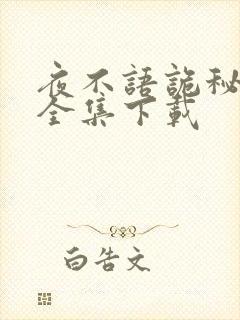 夜不語詭秘
全集下載
白告文